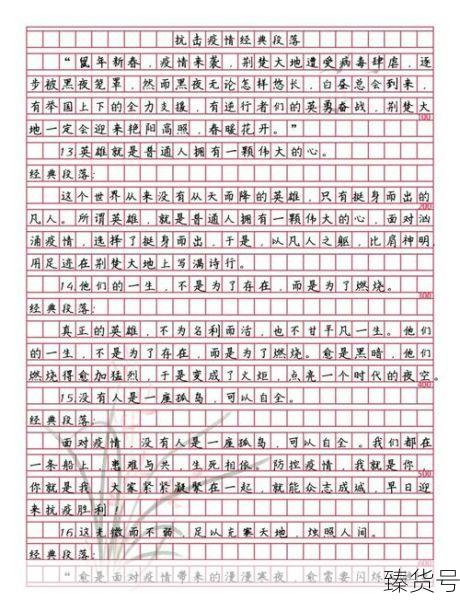 抗击疫情经典段落
“鼠年新春，疫情来袭，荆楚大地遭受病毒肆虐，逐
步被黑夜笼罩，然而黑夜无论怎样悠长，白昼总会到来，
有举国上下的全力支援，有逆行者们的英勇奋战，荆楚大
地一定会迎来艳阳高照，春暖花开。”
100
13.英雄就是普通人拥有一颗伟大的心。
经典段落：
这个世界从来没有从天而降的英雄，只有挺身而出的
200
凡人。所谓英雄，就是普通人拥有一颗伟大的心，面对汹
涌疫情，选择了挺身而出，于是，以凡人之躯，比肩神明，
用足迹在荆楚大地上写满诗行。
14.他们的一生，不是为了存在，而是为了燃烧。
300
经典段落：
真正的英雄，不为名利而活，也不甘平凡一生。他们
的一生，不是为了存在，而是为了燃烧。愈是黑暗，他们
燃烧得愈加猛烈，于是变成了火炬，点亮一个时代的夜空。
400
15.没有人是一座孤岛，可以自全。
经典段落：
面对疫情，没有人是一座孤岛，可以自全。我们都在
一条船上，患难与共，生死相依。防控疫情，我就是你，
500
你就是我，大家紧紧凝聚在一起，就能众志成城，早日迎
来抗疫胜利！
16.这光微而不弱，足以充塞天地，烛照人间。
经典段落：
600
“愈是面对疫情带来的漫漫寒夜，愈需要闪烁
臻货号